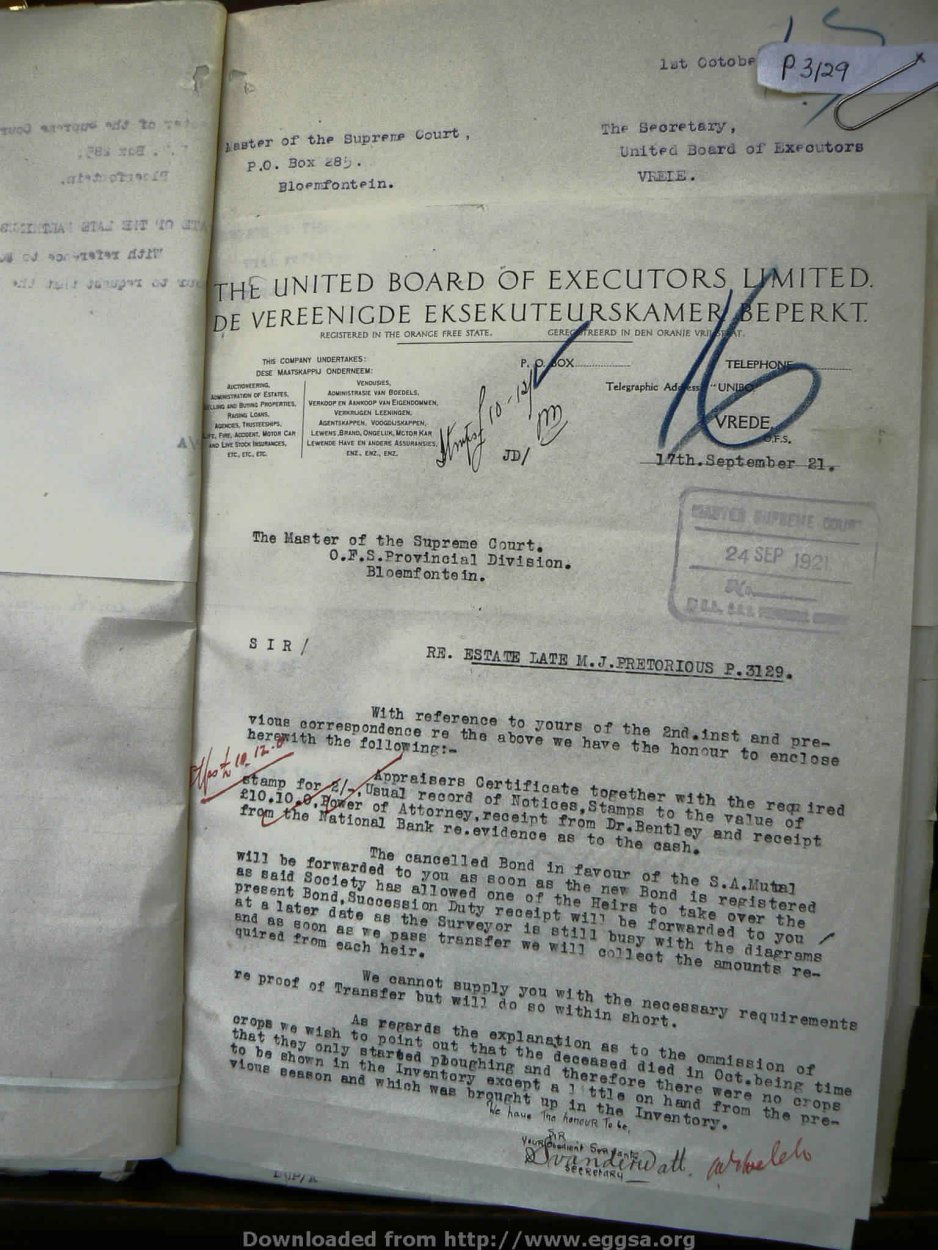 1st Octobe
P 3129
Master of the Supreme Court,
P.O. Box 285.
Bloemfontein.
The Secretary,
United Board of Executors
VREDE.
THE UNITED BOARD OF EXECUTORS LIMITED.
DE VEREENIGDE EKSEKUTEURSKAMER BEPERKT.
REGISTERED IN THE ORANGE FREE STATE.
GEREGISTREERD IN DEN ORANJE VRIJSTAAT.
THIS COMPANY UNDERTAKES:
DESE MAATSKAPPIJ ONDERNEEM:
AUCTIONEERING,
ADMINISTRATION OF ESTATES,
SELLING AND BUYING PROPERTIES,
RAISING LOANS,
AGENCIES, TRUSTEESHIPS,
LIFE, FIRE, ACCIDENT, MOTOR CAR
AND LIVE STOCK INSURANCES,
ETC., ETC., ETC.
VENDUSIES,
ADMINISTRASIE VAN BOEDELS,
VERKOOP EN AANKOOP VAN EIGENDOMMEN,
VERKRIJGEN LEENINGEN,
AGENTSKAPPEN, VOOGDIJSKAPPEN,
LEWENS, BRAND, ONGELUK, MOTOR KAR
LEWENDE HAVE EN ANDERE ASSURANSIES,
ENZ., ENZ., ENZ.
P. O. BOX
TELEPHONE
Telegraphic Address: "UNIBO
VREDE,
O.F.S.,
16
10-12/
JD/
17th.September 21.
MASTER SUPREME COURT
24 SEP 1921
The Master of the Supreme Court.
O.F.S.Provincial Division.
Bloemfontein.
S I R /
RE. ESTATE LATE M.J.PRETORIOUS P.3129.
With reference to yours of the 2nd.inst and pre-
vious correspondence re the above we have the honour to enclose
herewith the following:-
10.12.0
Appraisers Certificate together with the required
stamp for 2/-,Usual record of Notices,Stamps to the value of
£10.10.0,Power of Attorney,receipt from Dr.Bentley and receipt
from the National Bank re.evidence as to the cash.
The cancelled Bond in favour of the S.A.Mutual
will be forwarded to you as soon as the new Bond is registered
as said Society has allowed one of the Heirs to take over the
present Bond,Succession Duty receipt will be forwarded to you
at a later date as the Surveyor is still busy with the diagrams
and as soon as we pass transfer we will collect the amounts re-
quired from each heir.
We cannot supply you with the necessary requirements
re proof of Transfer but will do so within short.
As regards the explanation as to the ommission of
crops we wish to point out that the deceased died in Oct.being time
that they only started ploughing and therefore there were no crops
to be shown in the Inventory except a little on hand from the pre-
vious season and which was brought up in the Inventory.
We have The honouR To be,
SIR
YouR Obedient Servants
Secretary
Downloaded from http://www.eggsa.org